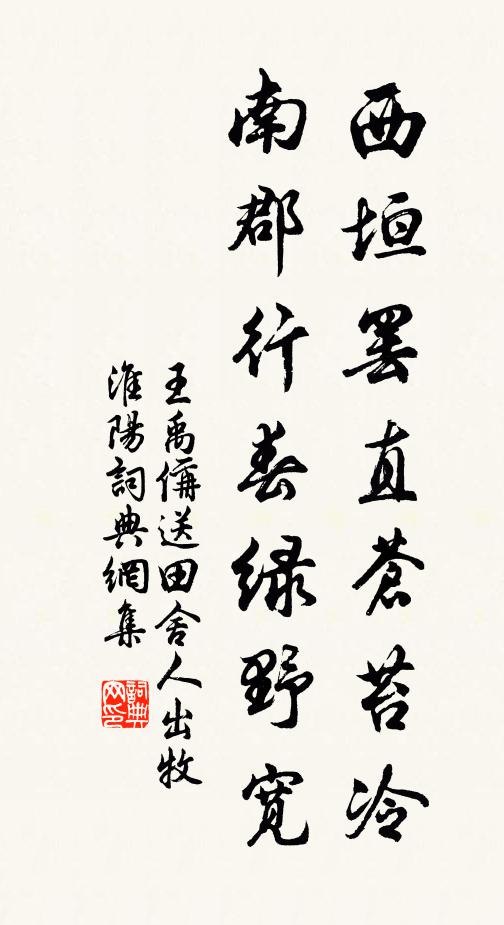 西垣罢直蒼苔冷
南郡行春緑野寬
王禹偁送田舍人出牧
淮陽詞典網集
詞典网印